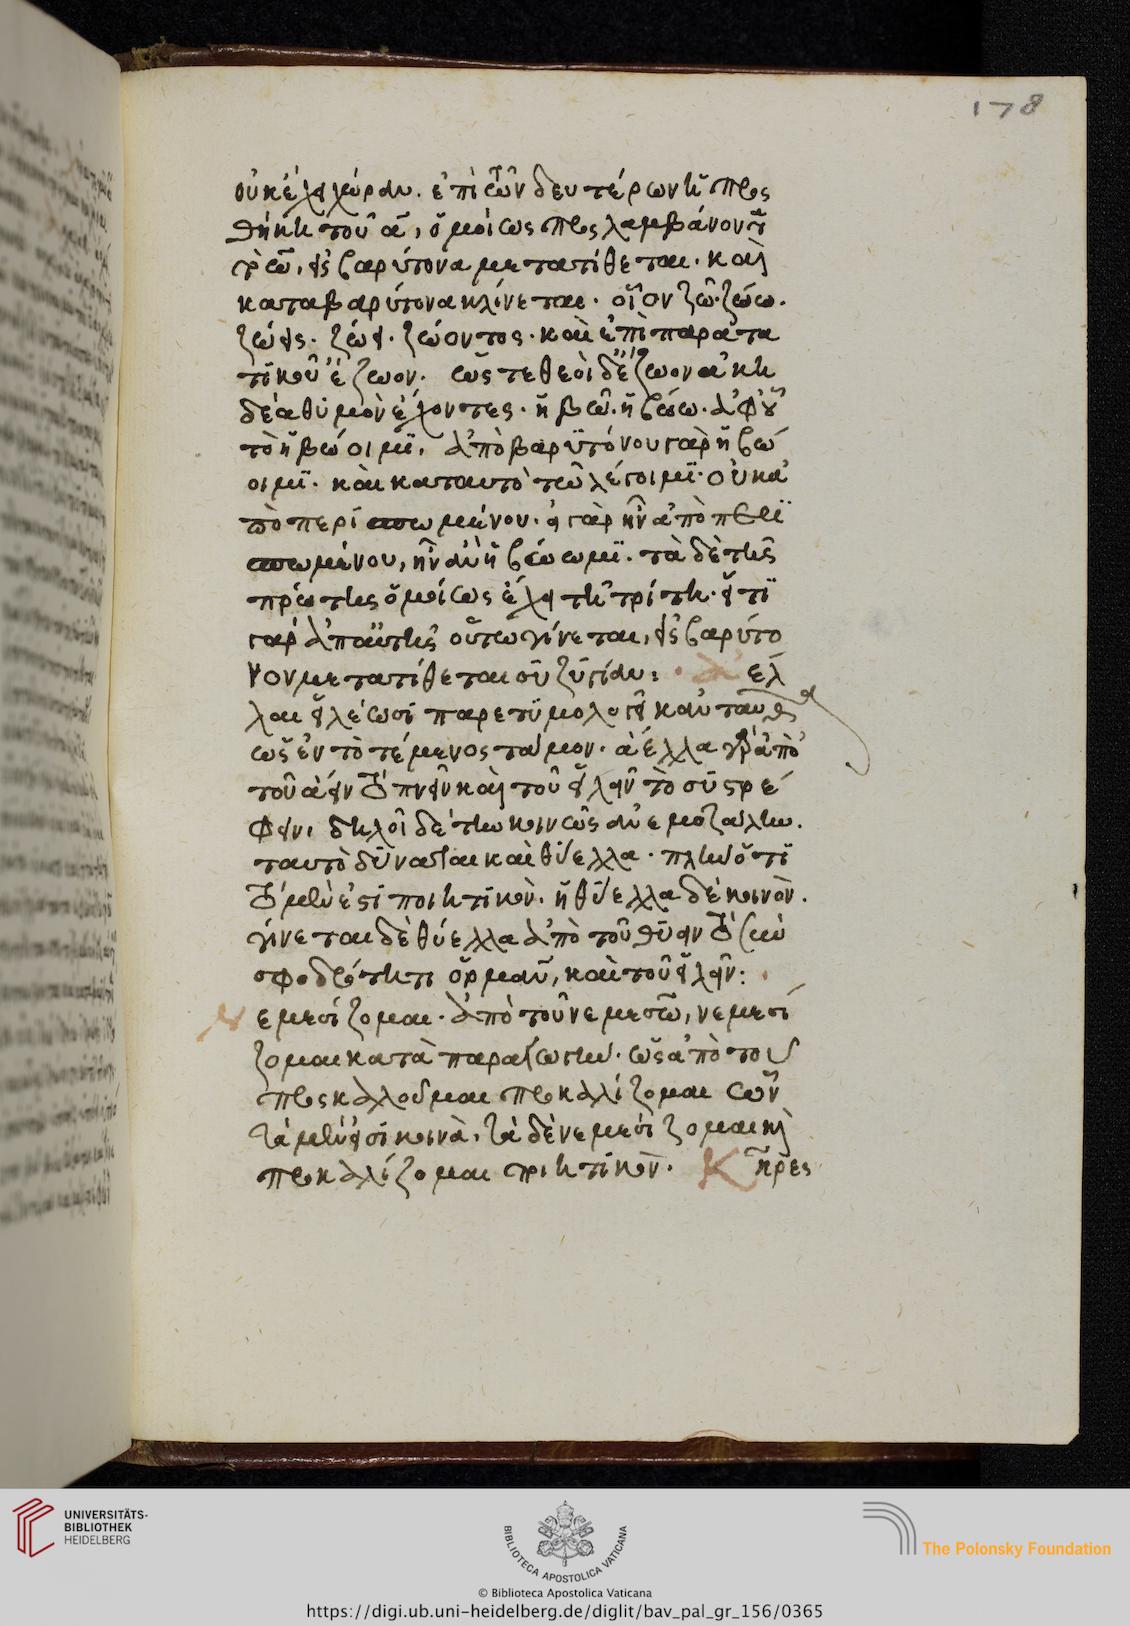 178
οὐκ ἔχει χώραν. ἐπὶ τῶν δευτέρων ἡ προς
θήκη τοῦ α, ὁμοίως προς λαμβάνοντ
τὸ ω, εἰς βαρύτονα μετατίθεται. καὶ
καταβαρύτονα κλίνεται. οἷον ζῶ. ζώω.
ζώεις. ζώει. ζώοντος. καὶ ἐπὶ παρατα
τικοῦ ἔζωον. ὥς τε θεοὶ δ' ἔζωον ἀκη
δέα θυμὸν ἔχοντες. ἡβῶ. ἡβώω. ἀφ' οὗ
τὸ ἡβώοιμι, ἀπὸ βαρυτόνου γὰρ ἡβώ
οιμι. καὶ καταυτὸ τῶ λέγοιμι. οὐκ ἀ
πὸ περισπωμένου. εἰ γὰρ ἦν ἀπὸ περι
σπωμένου, ἦν ἂν ἡβώωμι. τὰ δὲ τῆς
πρώτης ὁμοίως ἔχει τῆ τρίτη. ἔτι
γὰρ ἀπαύτης οὕτω γίνεται, εἰς βαρύτο
νον μετατίθεται συζυγίαν: ἀελ
λαι εἰλέωσι παρετυμολογεῖ καὶ ταῦθ
ὡς ἐν τὸ τέμενος τάμον. ἀέλλα γὰρ ἀπὸ
τοῦ ἀεῖν τὸ πνεῖν καὶ τοῦ εἰλεῖν τὸ συστρέ
φειν, δηλοῖ δὲ τὴν κοινῶς ἀνεμοζάλην.
ταυτὸ δύναται καὶ θύελλα. πλὴν ὅτι
τὸ μέν ἐστι ποιητικὸν. ἡ θύελλα δὲ κοινὸν.
γίνεται δὲ θύελλα ἀπὸ τοῦ θύειν τὸ σὺν
σφοδρότητι ὁρμᾶν, καὶ τοῦ εἰλεῖν:
Νεμεσίζομαι. ἀπὸ τοῦ νεμεσῶ, νεμεσί
ζομαι κατὰ παραγωγὴν. ὡς ἀπὸ τοῦ
προςκαλοῦμαι προκαλίζομαι ὧν
τὰ μέν εἰσι κοινὰ, τὰ δὲ νεμεσίζομαι καὶ
προκαλίζομαι ποιητικὸν. Κῆρες
UNIVERSITÄTS-
BIBLIOTHEK
HEIDELBERG
BIBLIOTECA APOSTOLICA VATICANA
The Polonsky Foundation
© Biblioteca Apostolica Vaticana
https://digi.ub.uni-heidelberg.de/diglit/bav_pal_gr_156/0365